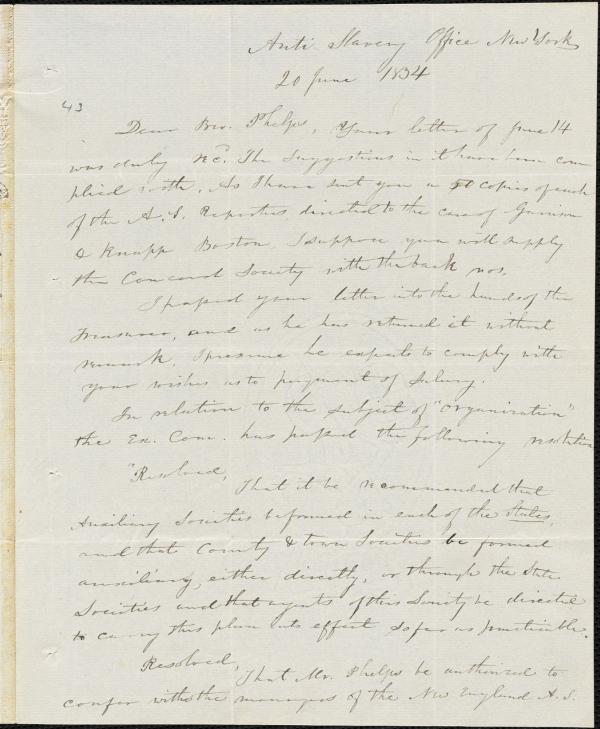 Anti-Slavery Office New York
20 June 1834
43
Dear Bro. Phelps, Your letter of June 14
was duly recd. The suggestions in it have been com
plied with. As I have sent you a 50 copies of each
of the A. S. Reporter, directed to the care of Garrison
& Knapp Boston, I suppose you will supply
the Concord Society with the back nos.
I passed your letter into the hands of the
Treasurer, and as he has returned it without
remark, I presume he expects to comply with
your wishes as to payment of salary.
In relation to the subject of "organization"
the Ex. Com. has passed the following resolution
"Resolved,
That it be recommended that
Auxiliary Societies be formed in each of the states,
and that County & town Societies be formed
auxiliary, either directly, or through the State
Societies and that agents of this Society be directed
to carry this plan into effect so far as practicable.
Resolved,
That Mr. Phelps be authorized to
confer with the managers of the New England A. S.